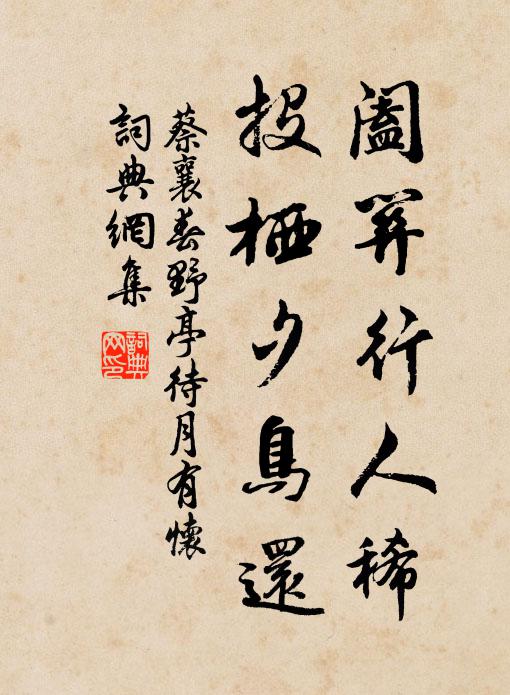 闔行人稀
投栖夕鳥還
蔡襄春野亭待月有懷
詞典網集
詞典网印